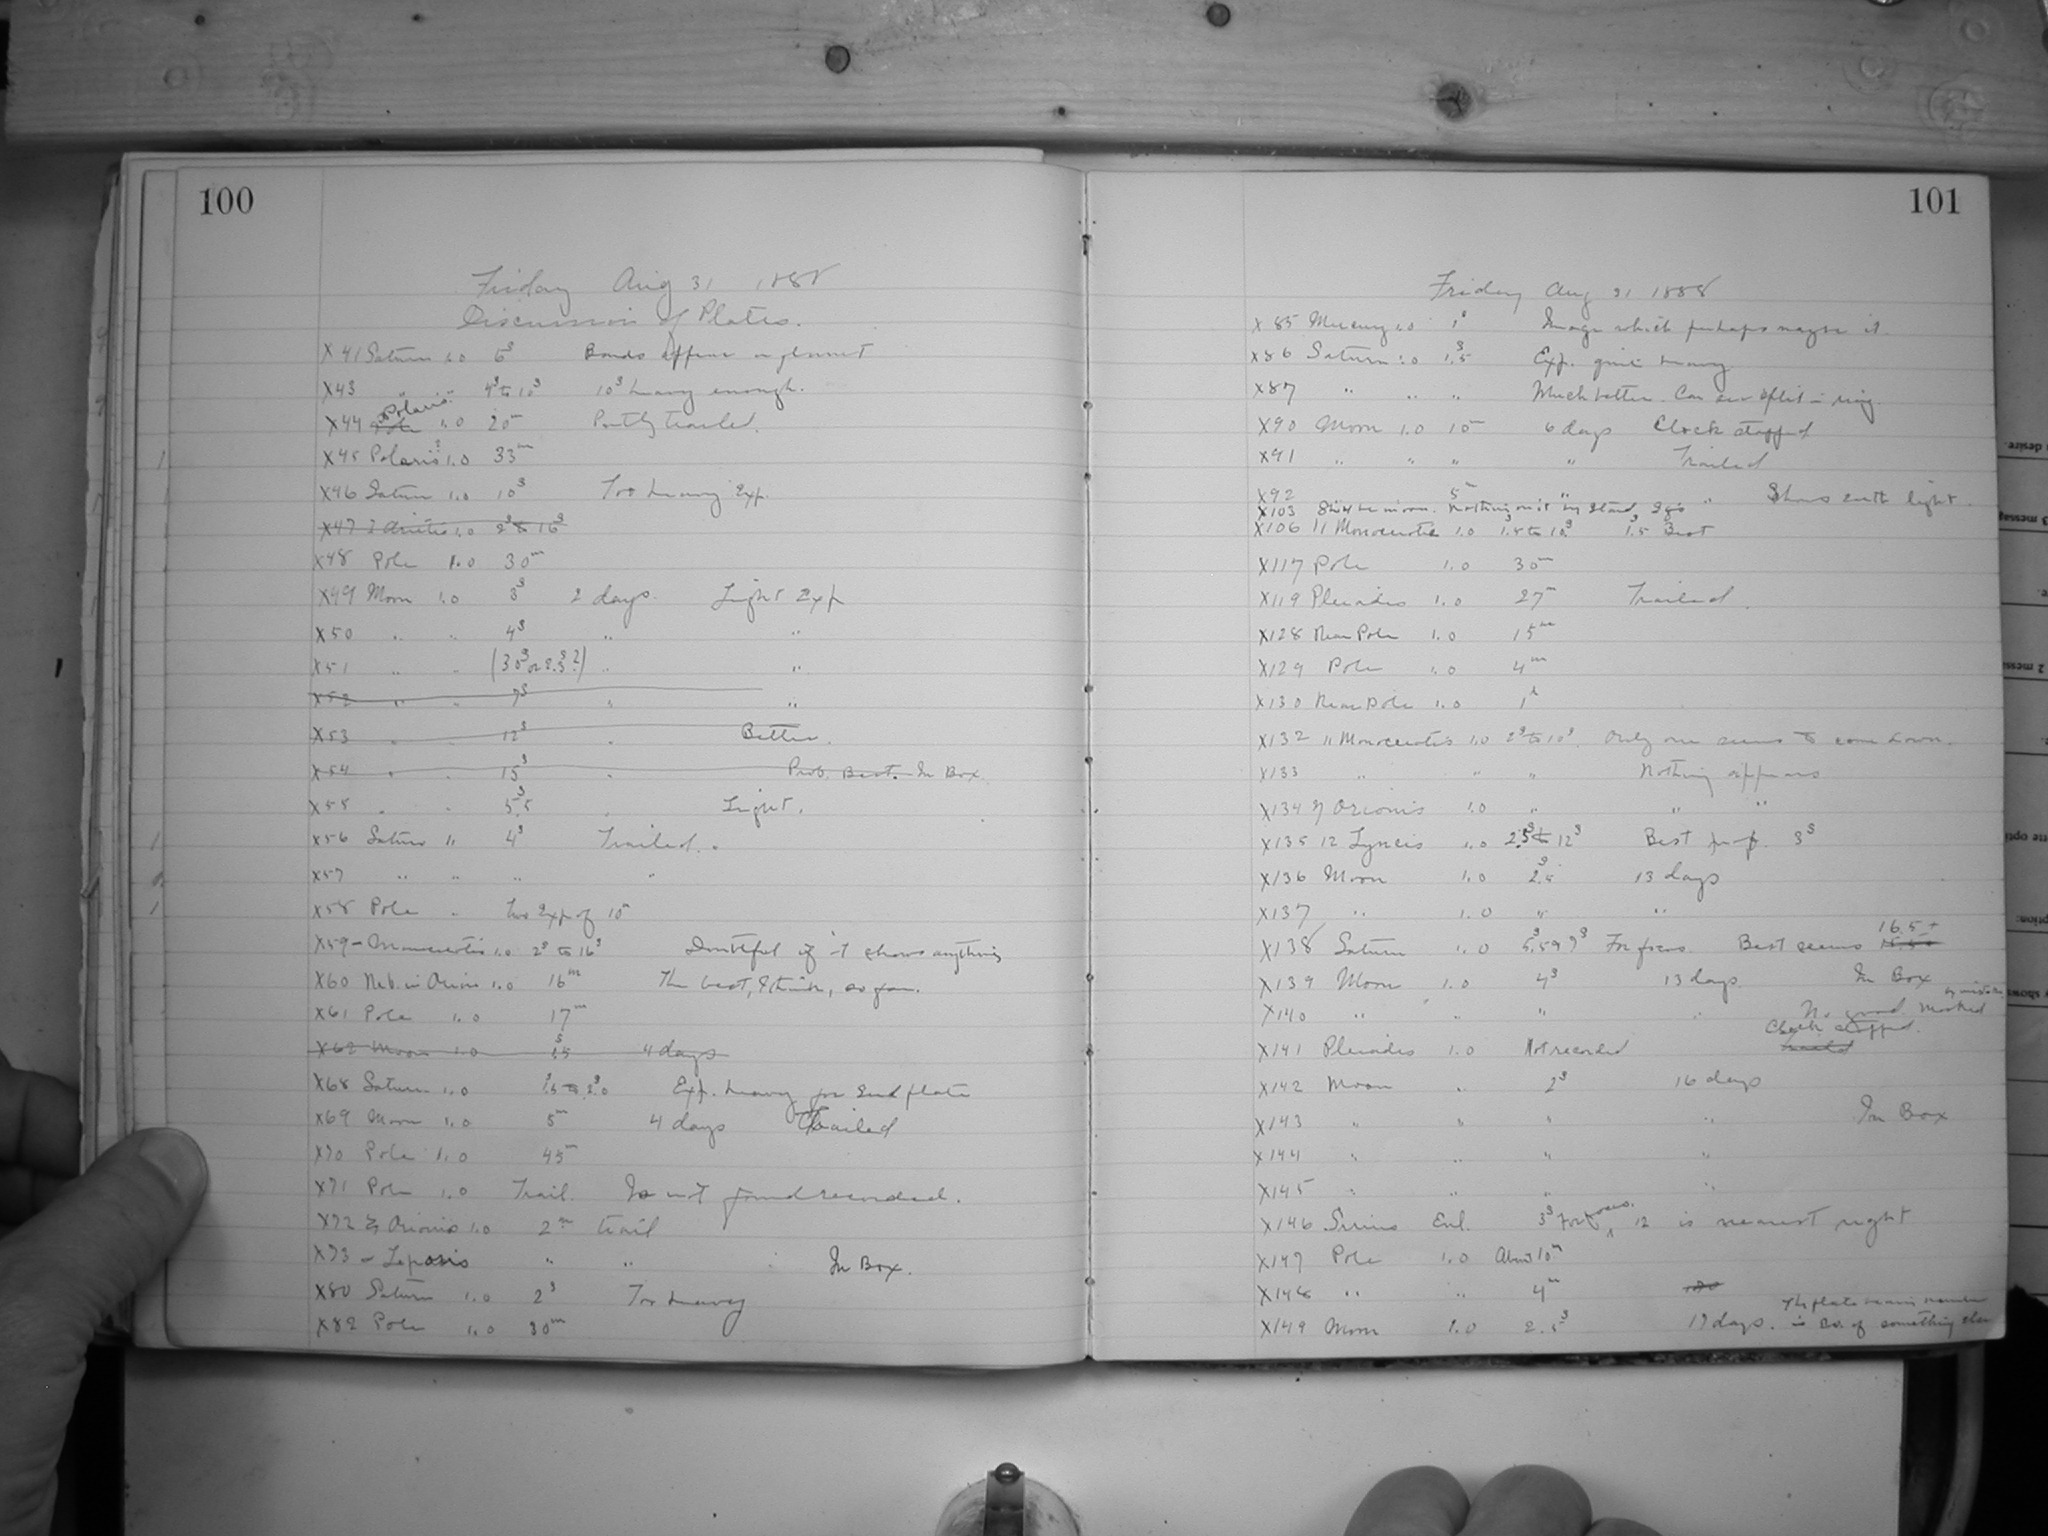 100
Friday Aug 31 1888
Discussion of Plates.
X41 Saturn 1.0 6s Bands appear on planet
X43 " " 4s to 10s 10s heavy enough.
X44 Polaris 1.0 20m Partly trailed.
X45 Polaris? 1.0 33m
X46 Saturn 1.0 10s Too heavy Exp.
X47 Arietis 1.0 2s to 16s
X48 Pole 1.0 30m
X49 Moon 1.0 3s 2 days. Light Exp
X50 " " 4s " "
X51 " " (30s or 2.3s?) " "
X52 " " 7s " "
X53 " " 12s " Better.
X54 " " 15s " Prob. Best. In Box
X55 " " 5.5s " Light.
X56 Saturn " 4s Trailed.
X57 " " " "
X58 Pole " two Exp of 10m
X59 - Monocerotis 1.0 2s to 16s Doubtful if it shows anything
X60 Neb. in Orion 1.0 16m The best, I think, so far.
X61 Pole 1.0 17m
X62 Moon 1.0 1.5s 4 days
X68 Saturn 1.0 1.5s to 2.0s Exp. heavy for Seed plate
X69 Moon 1.0 5m 4 days Trailed
X70 Pole 1.0 45m
X71 Pole 1.0 Trail Is not found recorded.
X72 Orionis 1.0 2m trail
X73 - Leporis " " In Box.
X80 Saturn 1.0 2s Too heavy
X82 Pole 1.0 30m
101
Friday Aug 31 1888
X85 Mercury 1.0 1s Image which perhaps maybe it
X86 Saturn 1.0 1.5s Exp. quite heavy
X87 " " " Much better. Can see split in ring.
X90 Moon 1.0 10m 6 days Clock stopped
X91 " " " " Trailed
X92 5m " " Shows earth light.
X103 Shd be moon. Nothing on it
X106 11 Monocerotis 1.0 1.5s to 10s 1.5s Best
X117 Pole 1.0 30m
X119 Pleiades 1.0 27m Trailed.
X128 Near Pole 1.0 15m
X129 Pole 1.0 4m
X130 Near Pole 1.0 1h
X132 11 Monocerotis 1.0 2s to 10s. Only one seems to come down.
X133 " " " Nothing appears
X134 η Orionis 1.0 " " "
X135 12 Lyncis 1.0 2.5s to 12s Best 3s
X136 Moon 1.0 2.5s 13 days
X137 " 1.0 " "
X138 Saturn 1.0 For focus. Best seems 15.50 16.5+
X139 Moon 1.0 4s 13 days. In Box
X140 " " " " No good. Marked by mistake
X141 Pleiades 1.0 Not recorded trailed Clock stopped.
X142 Moon " 2s 16 days
X143 " " " " In Box
X144 " " " "
X145 " " " "
X146 Sirius Enl. 3s for focus. 12 is nearest right
X147 Pole 1.0 About 10m
X148 " " 4m
X149 Moon 1.0 2.5s 17 days. is no. of something else